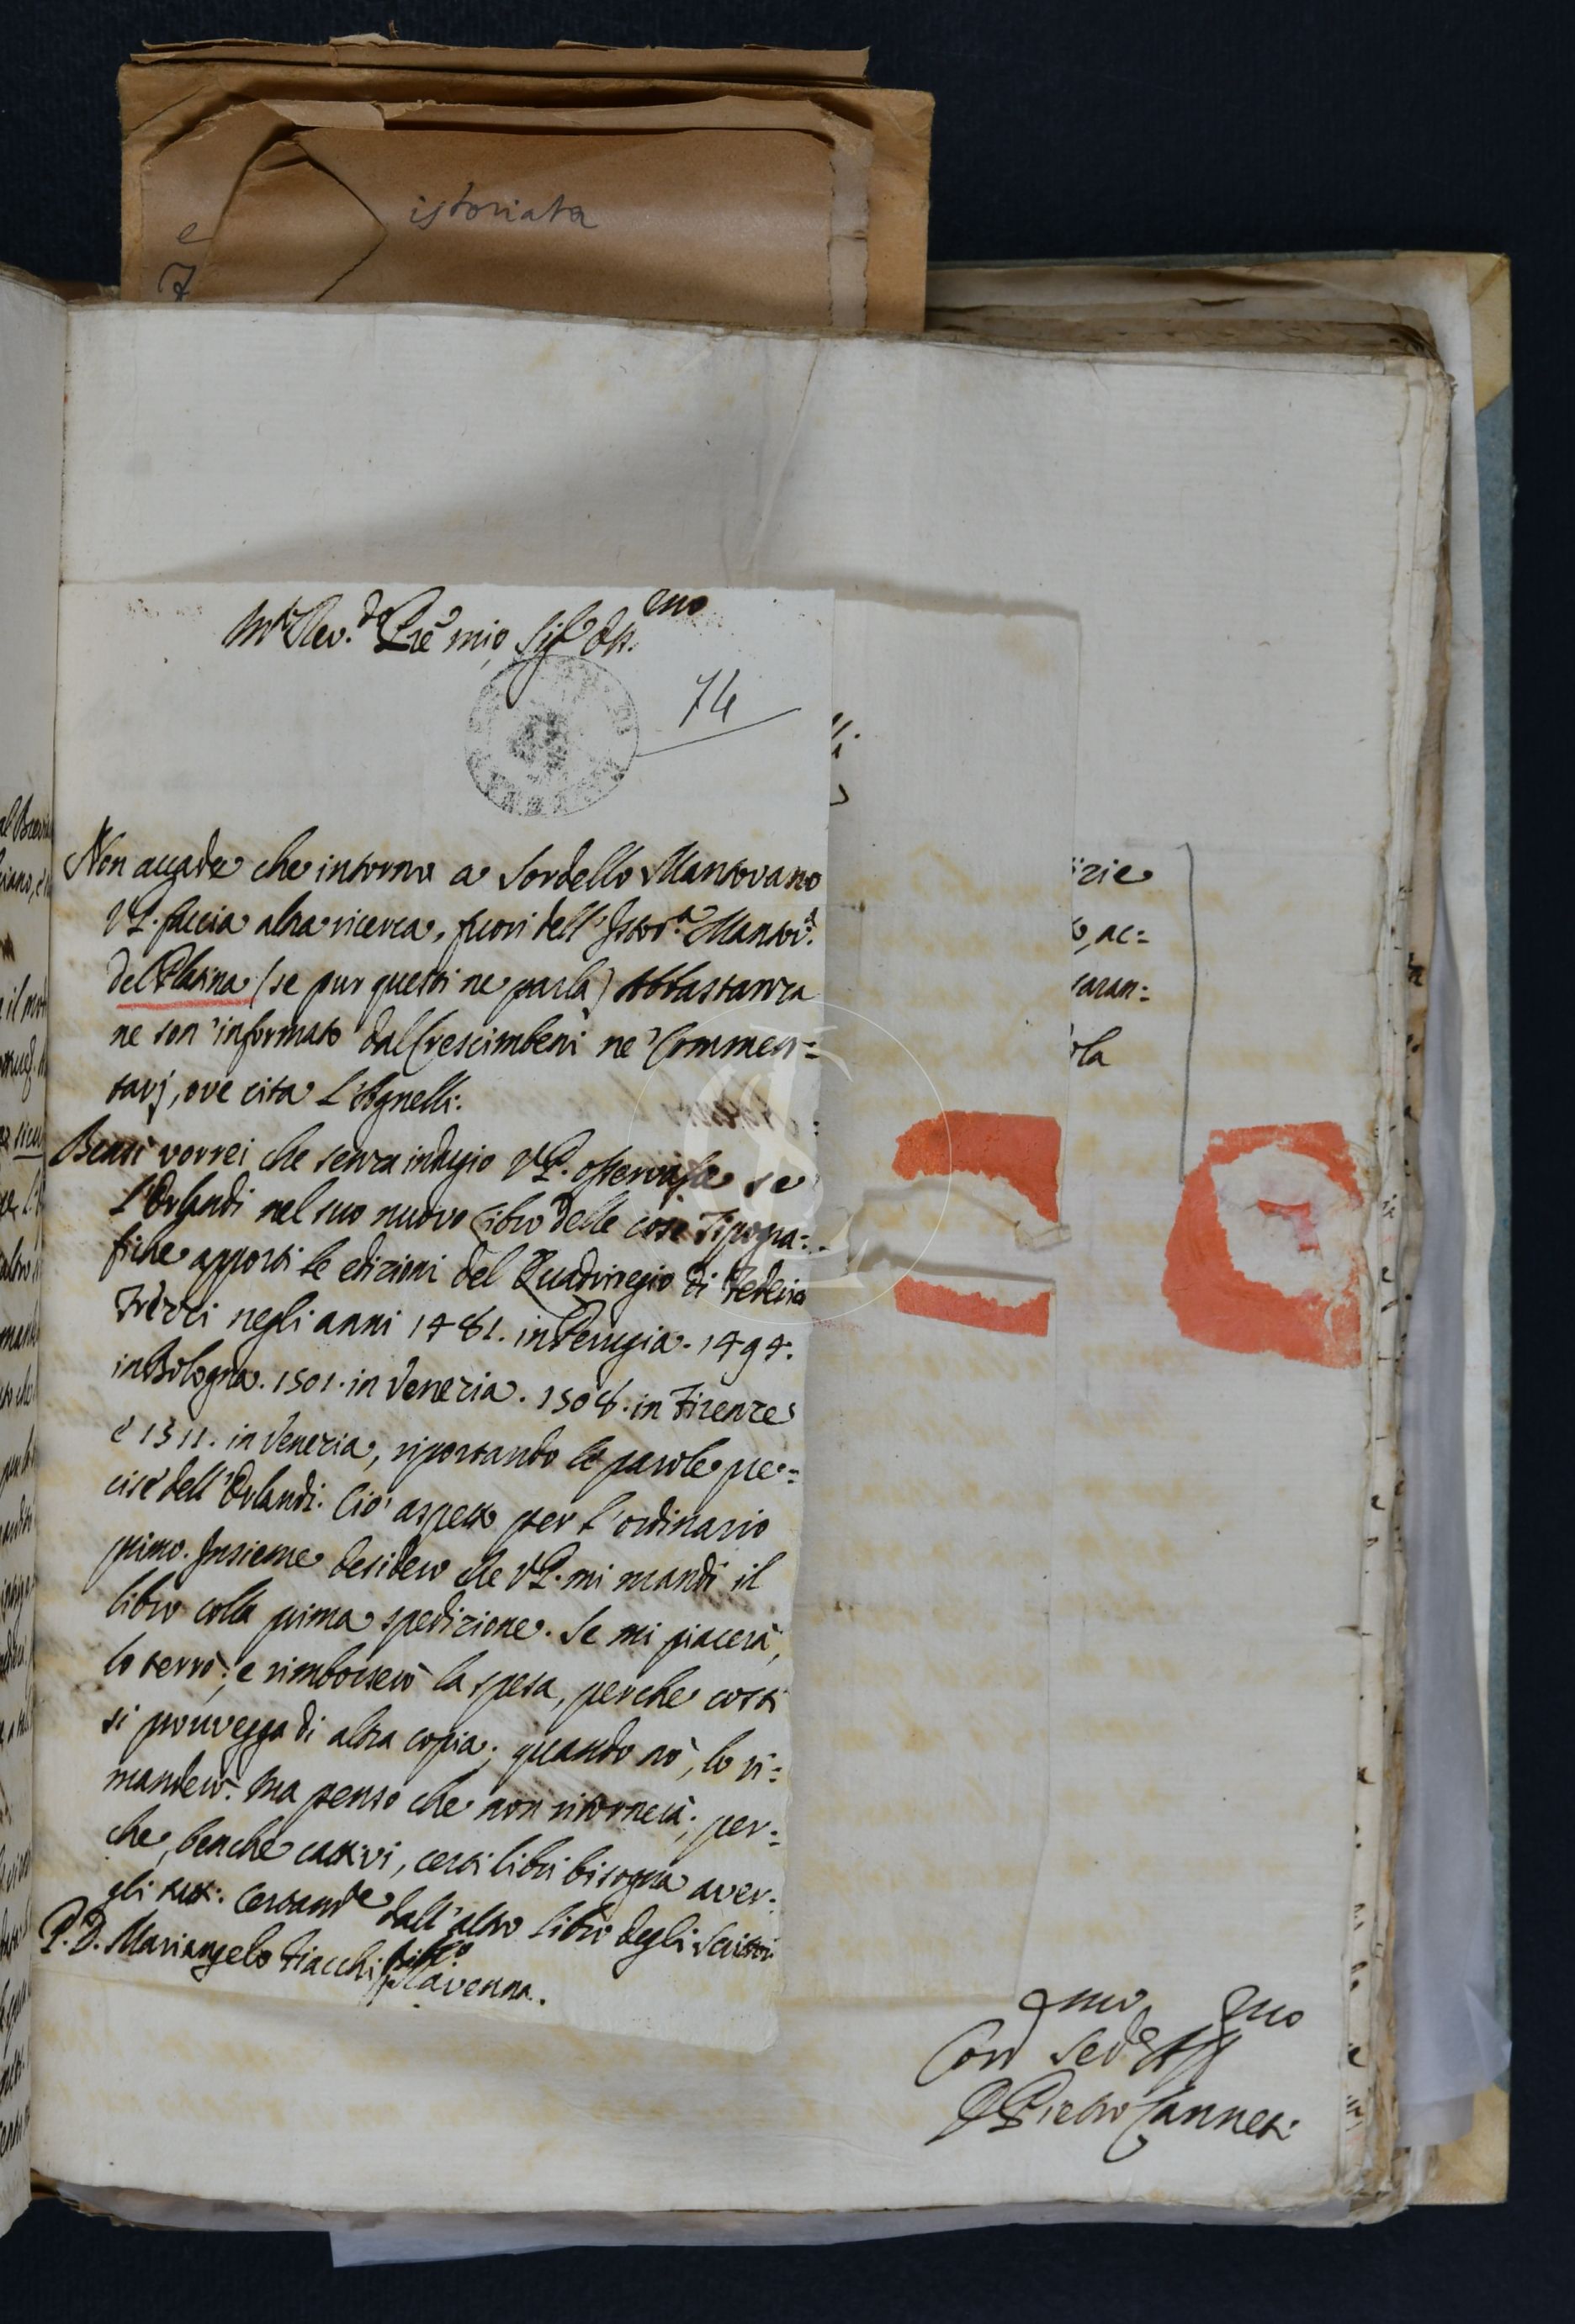 istoriata
e
7
M.to Rev.do Pre mio, Sig.r Oss.mo
74
Non accade che intorno a Sordello Mantovano
V.P. faccia altra ricerca, fuori dell'Istor.a Mantov.a
del Platina (se pur questi ne parla) Abbastanza
ne son'informato dal Crescimbeni ne' Commen=
tarj, ove cita l'Agnelli.
Bensì vorrei che senza indugio V.P. osservasse se
l'Orlandi nel suo nuovo libro delle cose Tipogra=
fiche apporti le edizioni del Quadriregio di Federico
Frezzi negli anni 1481. in Perugia. 1494.
in Bologna. 1501. in Venezia. 1508. in Firenze
e 1511. in Venezia, riportando le parole pre=
cise dell'Orlandi. Ciò aspetto per l'ordinario
primo. Insieme desidero che V.P. mi mandi il
libro colla prima spedizione. Se mi piacerà,
lo terrò; e rimborserò la spesa, perche costì
si provvegga di altra copia; quando nò, lo ri=
manderò. Ma penso che non ritornerà; per=
che, benche cattivi, certi libri bisogna aver=
gli tutti. Certam.te dall'altro libro degli Scrittori
P. D. Mariangelo Fiacchi
Ravenna.
izie
o, ac=
aran=
ola
D. Pietro Canneti